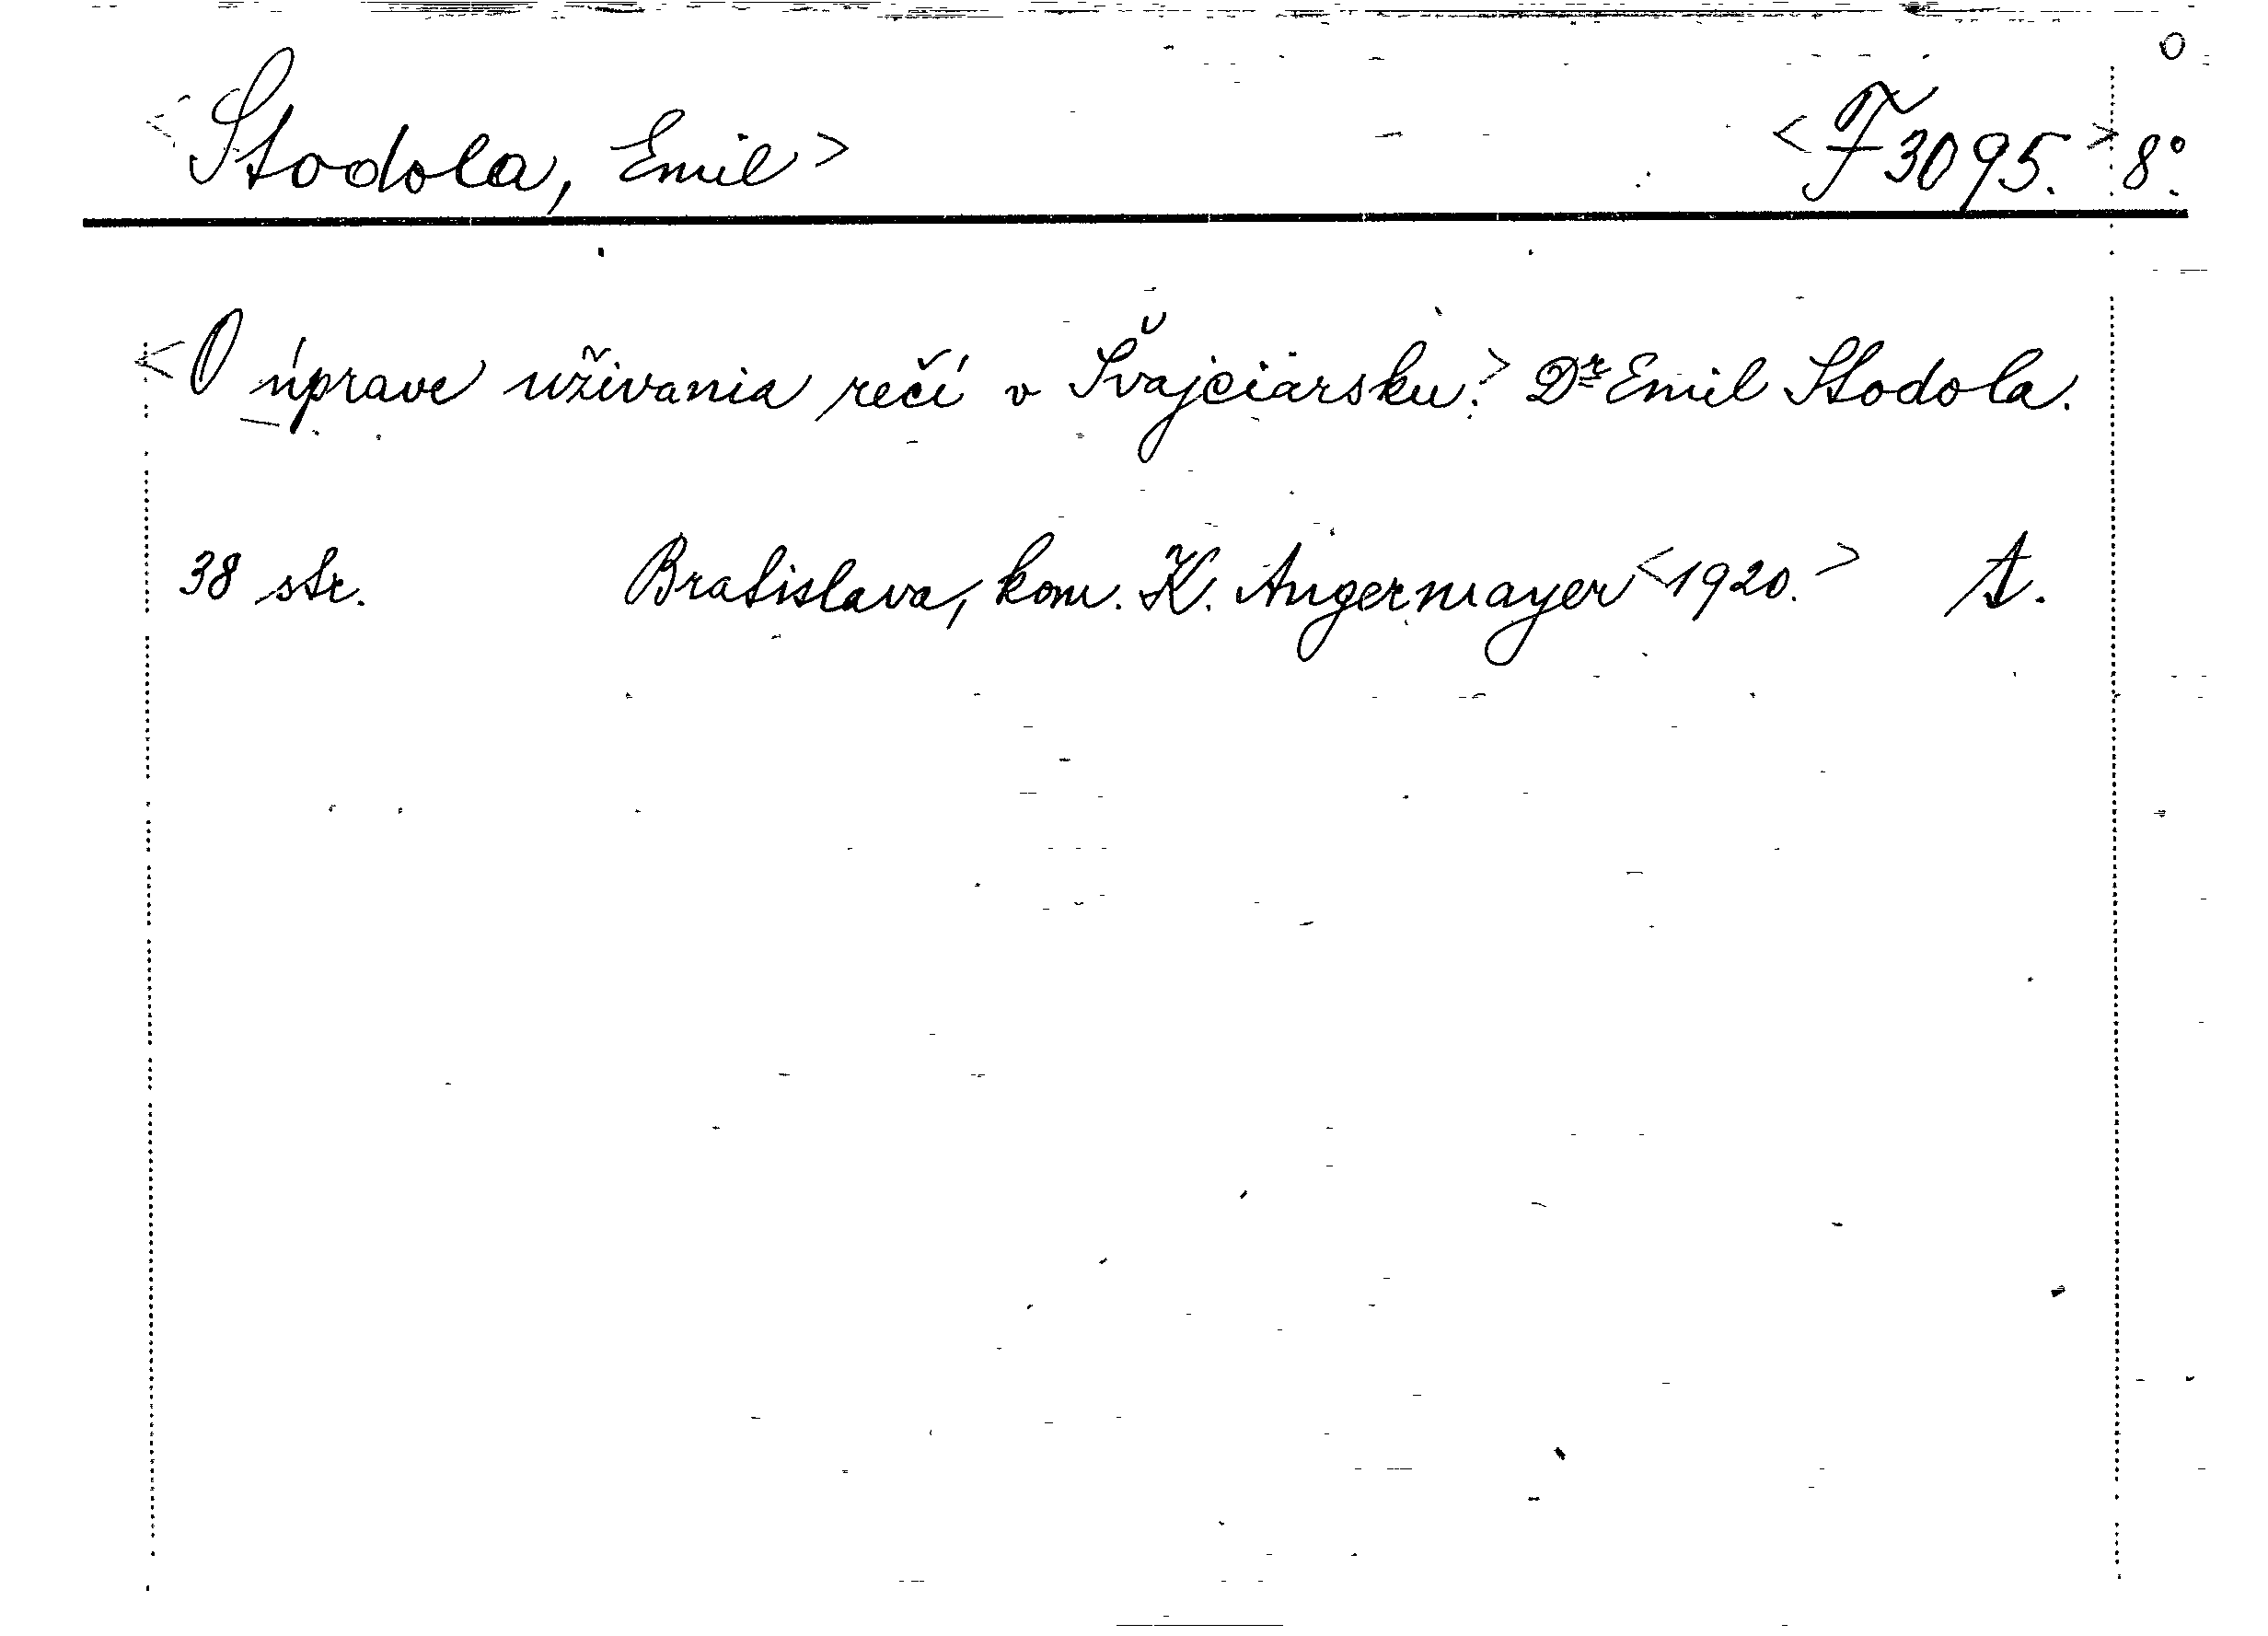 <Stodola, Emil> <F 3095.> 8°.
<O úprave užívania rečí v Švajčiarsku.> Dr Emil Stodola.
38 str. Bratislava, kom. K. Angermayer <1920.> A.